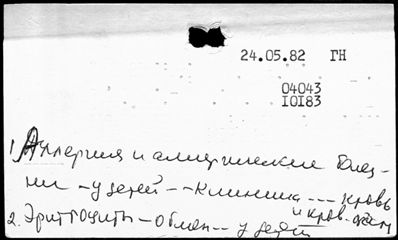 24.05.82 ГН
04043
10183
1. Аллергия и аллергические болез-
ни – у детей – – клиника – – – кровь
и кров.
2. Эритроциты – обмен – – у детей